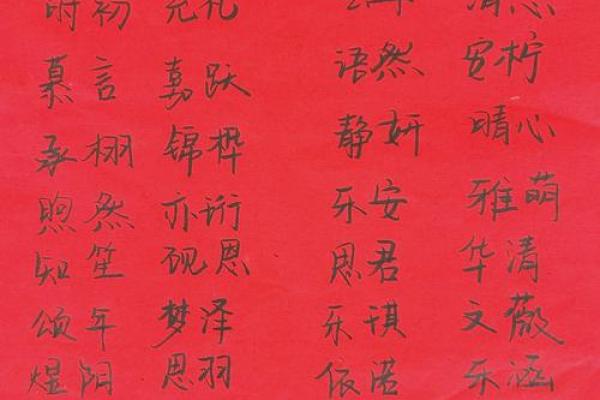 初 礼
慕言 嘉跃 语然 安柠
承栩 锦桦 静妍 晴心
煦然 亦珩 乐安 雅萌
知笙 砚恩 思君 华清
颂年 梦泽 乐琪 文薇
煜阳 思羽 依 乐涵